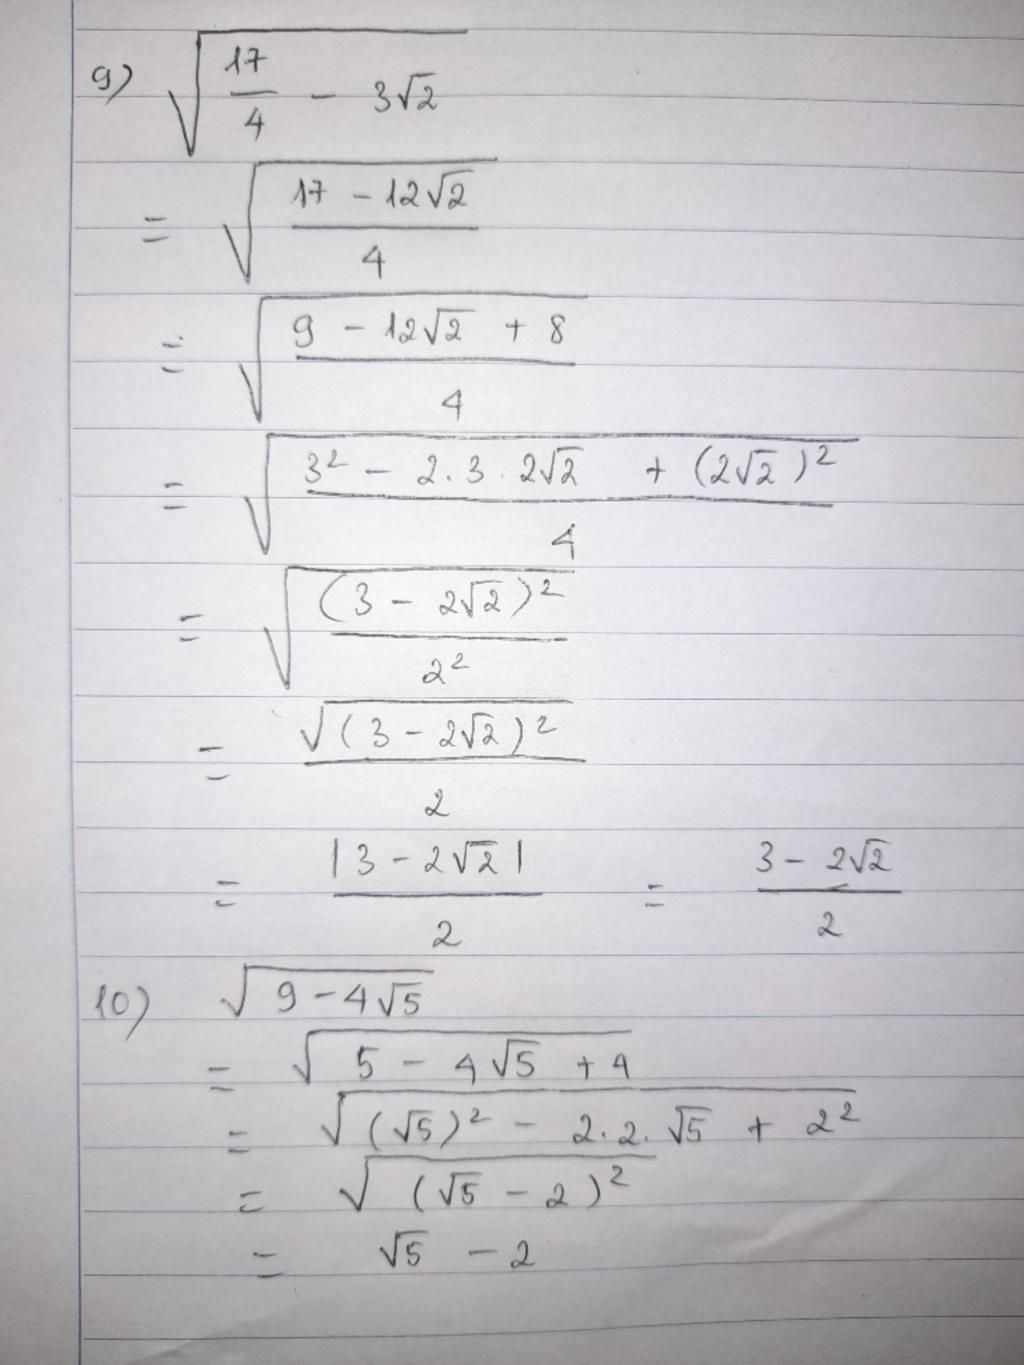 9) √(17/4 - 3√2)
= √((17 - 12√2)/4)
= √((9 - 12√2 + 8)/4)
= √((3² - 2.3.2√2 + (2√2)²)/4)
= √((3 - 2√2)²/2²)
= √(3 - 2√2)²/2
= |3 - 2√2|/2 = (3 - 2√2)/2
10) √(9 - 4√5)
= √(5 - 4√5 + 4)
= √((√5)² - 2.2.√5 + 2²)
= √(√5 - 2)²
= √5 - 2